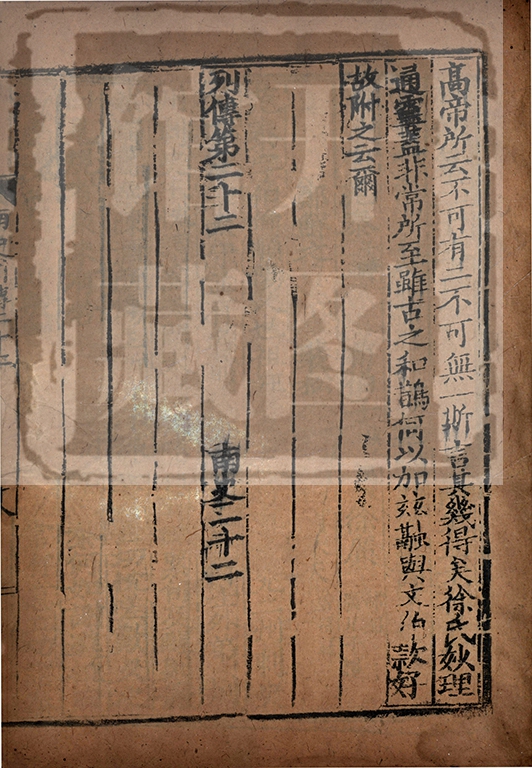 高帝所云不可有二不可無一斯言其幾得矣徐氏妙理
通靈蓋非常所至雖古之和鵲何以加兹融與文伯款好
故附之云爾
列傳第二十二
南史三十二